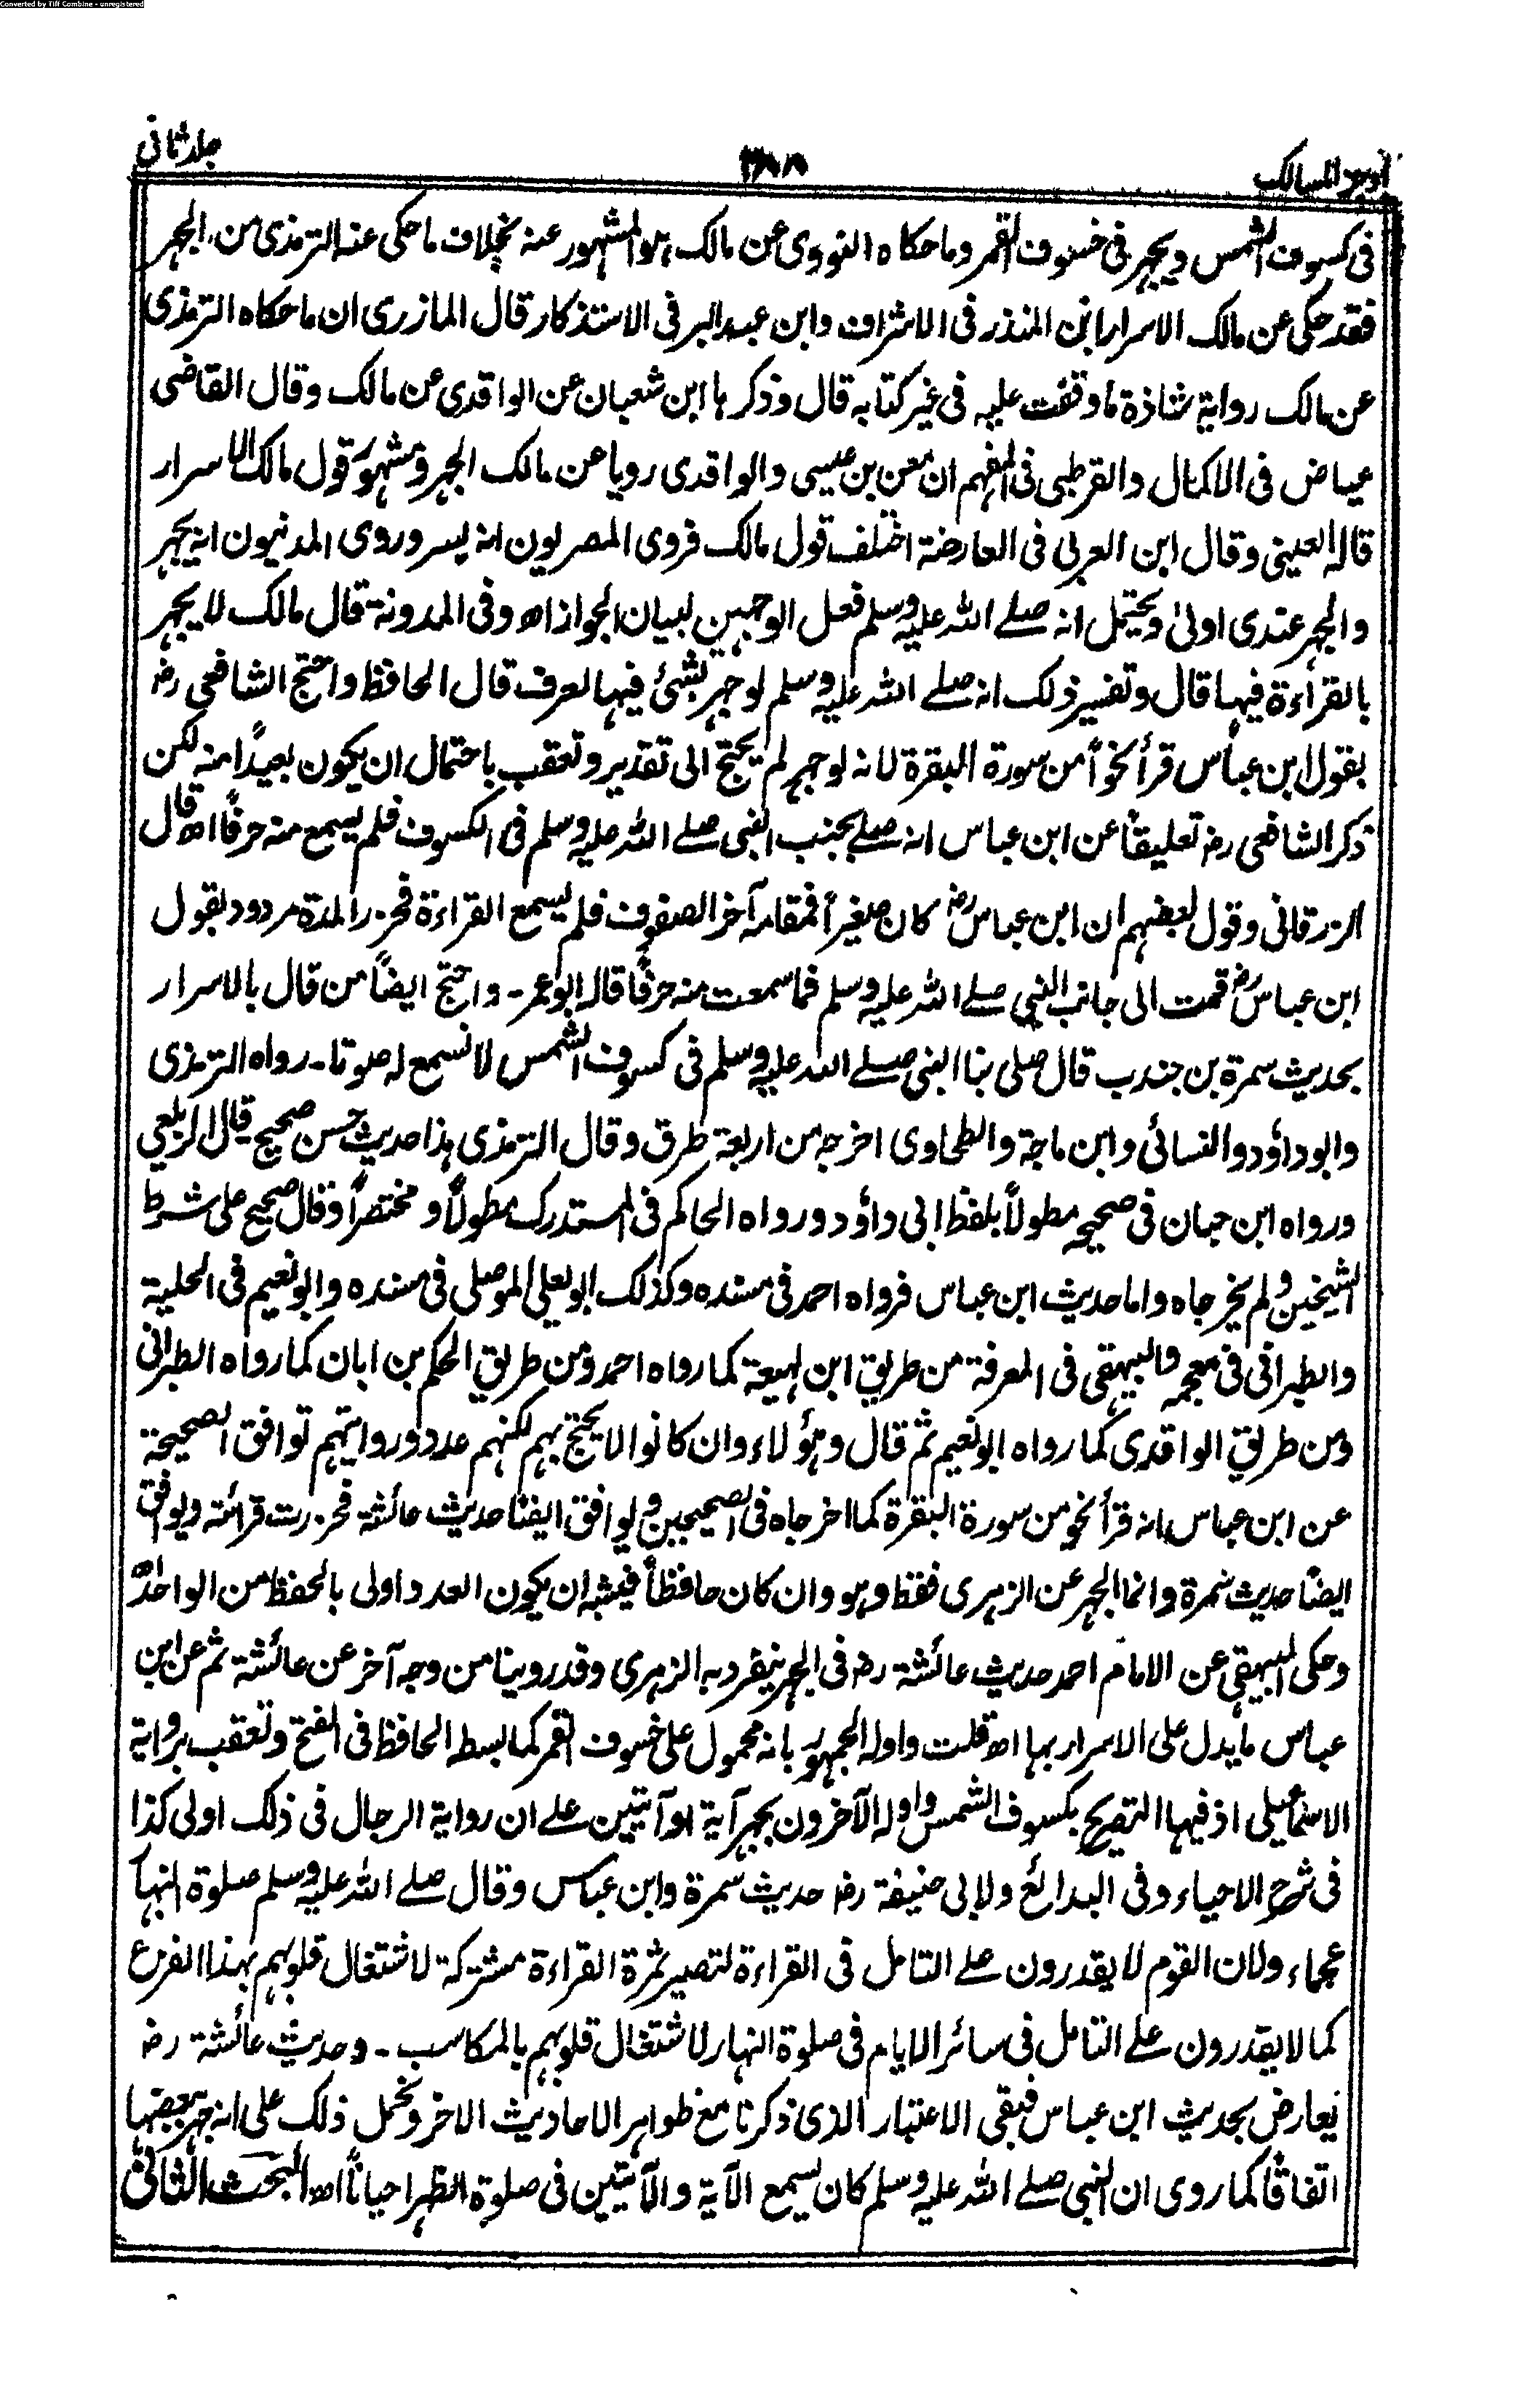 Converted by Tiff Combine - unregistered
اوجز المسالك
جلد ثانى
فى كسوف الشمس ويجهر فى خسوف القمر وما حكاه النووى عن مالك هو المشهور عنه بخلاف ما حكى عنه الترمذى من الجهر
فقد حكى عن مالك الاسرار ابن المنذر فى الاشراف وابن عبد البر فى الاستذكار قال المازرى ان ما حكاه الترمذى
عن مالك رواية شاذة ما وقفت عليه فى غير كتابه قال وذكرها ابن شعبان عن الواقدى عن مالك وقال القاضى
عياض فى الاكمال والقرطبى فى المفهم ان معن بن عيسى والواقدى رويا عن مالك الجهر ومشهور قول مالك الاسرار
قاله العينى وقال ابن العربى فى العارضة اختلف قول مالك فروى المصريون انه يسر وروى المدنيون انه يجهر
والجهر عندى اولىٰ ويحتمل انه صلے الله عليه وسلم فعل الوجهين لبيان الجواز اھ وفى المدونة قال مالك لا يجهر
بالقراءة فيها قال وتفسير ذلك انه صلے الله عليه وسلم لو جهر بشئ فيها لعرف قال الحافظ واحتج الشافعى رضہ
بقول ابن عباس قرأ نحواً من سورة البقرة لانه لو جهر لم يحتج الى تقدير وتعقب باحتمال ان يكون بعيداً منه لكن
ذكر الشافعى رضہ تعليقاً عن ابن عباس انه صلے بجنب النبى صلے الله عليه وسلم فى الكسوف فلم يسمع منه حرفاً اھ قال
الزرقانى وقول بعضهم ان ابن عباس رضہ كان صغيراً فمقامه آخر الصفوف فلم يسمع القراءة فحزر المدة مردود بقول
ابن عباس رضہ قمت الى جانب النبي صلے الله عليه وسلم فما سمعت منه حرفاً قاله ابو عمر۔ واحتج ايضاً من قال بالاسرار
بحديث سمرة بن جندب قال صلى بنا النبى صلے الله عليه وسلم فى كسوف الشمس لا نسمع له صوتا۔ رواه الترمذى
وابو داؤد والنسائى وابن ماجة والطحاوى اخرجه من اربعة طرق وقال الترمذى هذا حديث حسن صحيح قال الزيلعي
ورواه ابن حبان فى صحيحه مطولاً بلفظ ابى داؤد ورواه الحاكم فى المستدرك مطولاً و مختصراً وقال صحيح على شرط
الشيخين ولم يخرجاه واما حديث ابن عباس فرواه احمد فى مسنده وكذلك ابو يعلى الموصلى فى مسنده وابو نعيم فى الحلية
والطبرانى فى معجمه والبيهقى فى المعرفة من طريق ابن لهيعة كما رواه احمد ومن طريق الحكم بن ابان كما رواه الطبرانى
ومن طريق الواقدى كما رواه ابو نعيم ثم قال وهؤلاء وان كانوا لا يحتج بهم لكنهم عدد وروايتهم توافق الصحيحة
عن ابن عباس انه قرأ نحو من سورة البقرة كما اخرجاه فى الصحيحين ويوافق ايضا حديث عائشة فحزرت قرائته ويوافق
ايضا حديث سمرة وانما الجهر عن الزهرى فقط وهو وان كان حافظاً فيشبه ان يكون العدد اولى بالحفظ من الواحد اھ
وحكى البيهقي عن الامام احمد حديث عائشة رضہ فى الجهر ينفرد به الزهرى وقد روينا من وجه آخر عن عائشة ثم عن ابن
عباس ما يدل على الاسرار بها اھ قلت واوله الجمهور بانه محمول على خسوف القمر كما بسطه الحافظ فى الفتح وتعقب برواية
الاسمٰعيلى اذ فيها التصريح بكسوف الشمس واوله الآخرون بجهر آية او آيتين علے ان رواية الرجال فى ذلك اولى كذا
فى شرح الاحياء وفى البدائع ولابى حنيفة رضہ حديث سمرة وابن عباس وقال صلے الله عليه وسلم صلوة النها
عجماء ولان القوم لا يقدرون علے التامل فى القراءة لتصير ثمرة القراءة مشتركة لاشتغال قلوبهم بهذا الفزع
كما لا يقدرون علے التامل فى سائر الايام فى صلوة النهار لاشتغال قلوبهم بالمكاسب۔ وحديث عائشة رضہ
تعارض بحديث ابن عباس فبقى الاعتبار الذى ذكرنا مع ظواهر الاحاديث الاخر ونحمل ذلك على انه جهر ببعضها
اتفاقا كما روى ان النبى صلے الله عليه وسلم كان يسمع الآية والآيتين فى صلوة الظهر احياناً اھ البحث الثانى